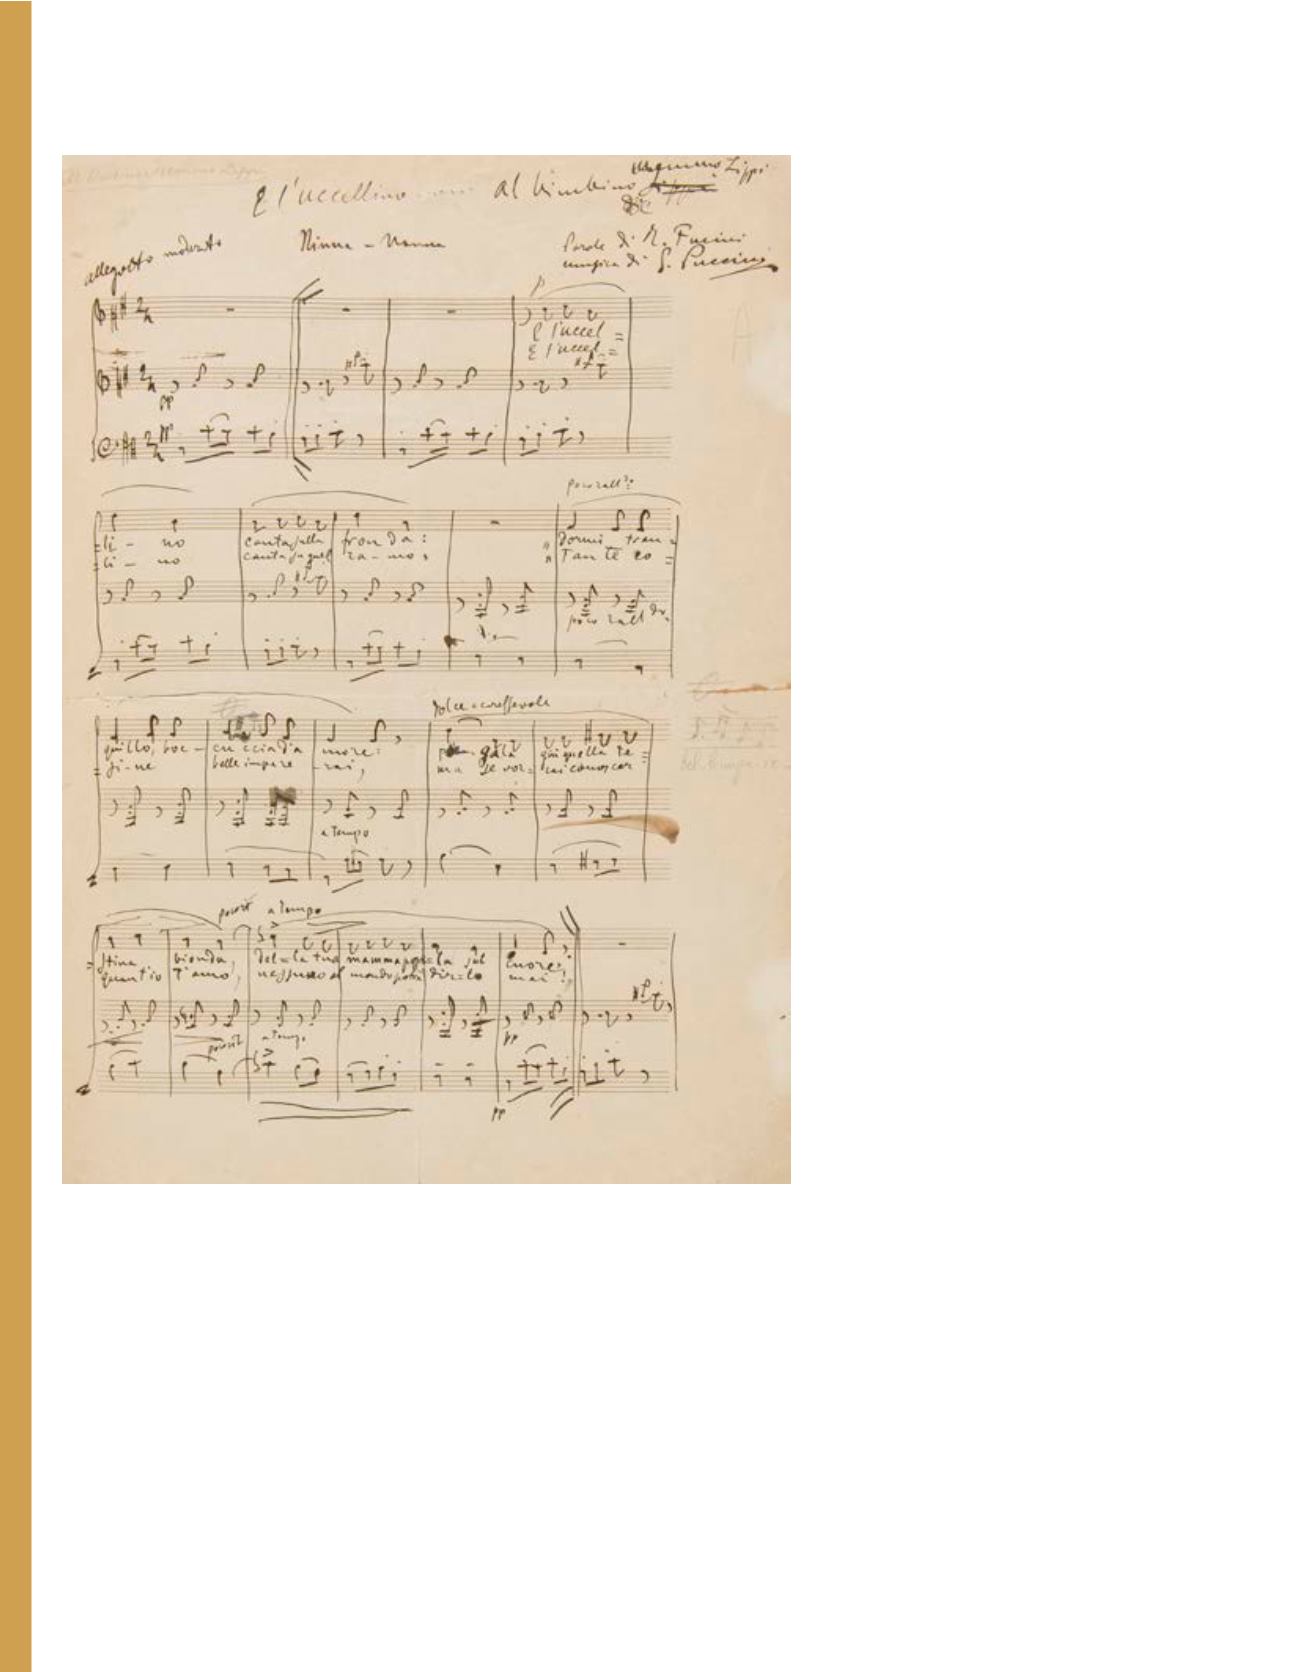 E l'uccellino
al bimbino Memmo Lippi
allegretto moderato
Ninna - Nanna
Parole di R. Fucini
musica di G. Puccini
p
E l'uccel =
E l'uccel =
pp
poco rall:
= li - no canta sulla fronda: dormi tran =
= li - no canta su quel ra - mo, Tante co =
poco rall
dolce carezzevole
quillo, boc - cuccia d'a more: piegala giù quella te =
= sine belle impare - rai, ma se vor = rai conoscer
a Tempo
poco rit a tempo
= stina bionda, del = la tua mamma posa = la sul Cuore.
quant'io T'amo, nessuno al mondo potrà dir = lo mai!
poco rit a tempo
pp
pp